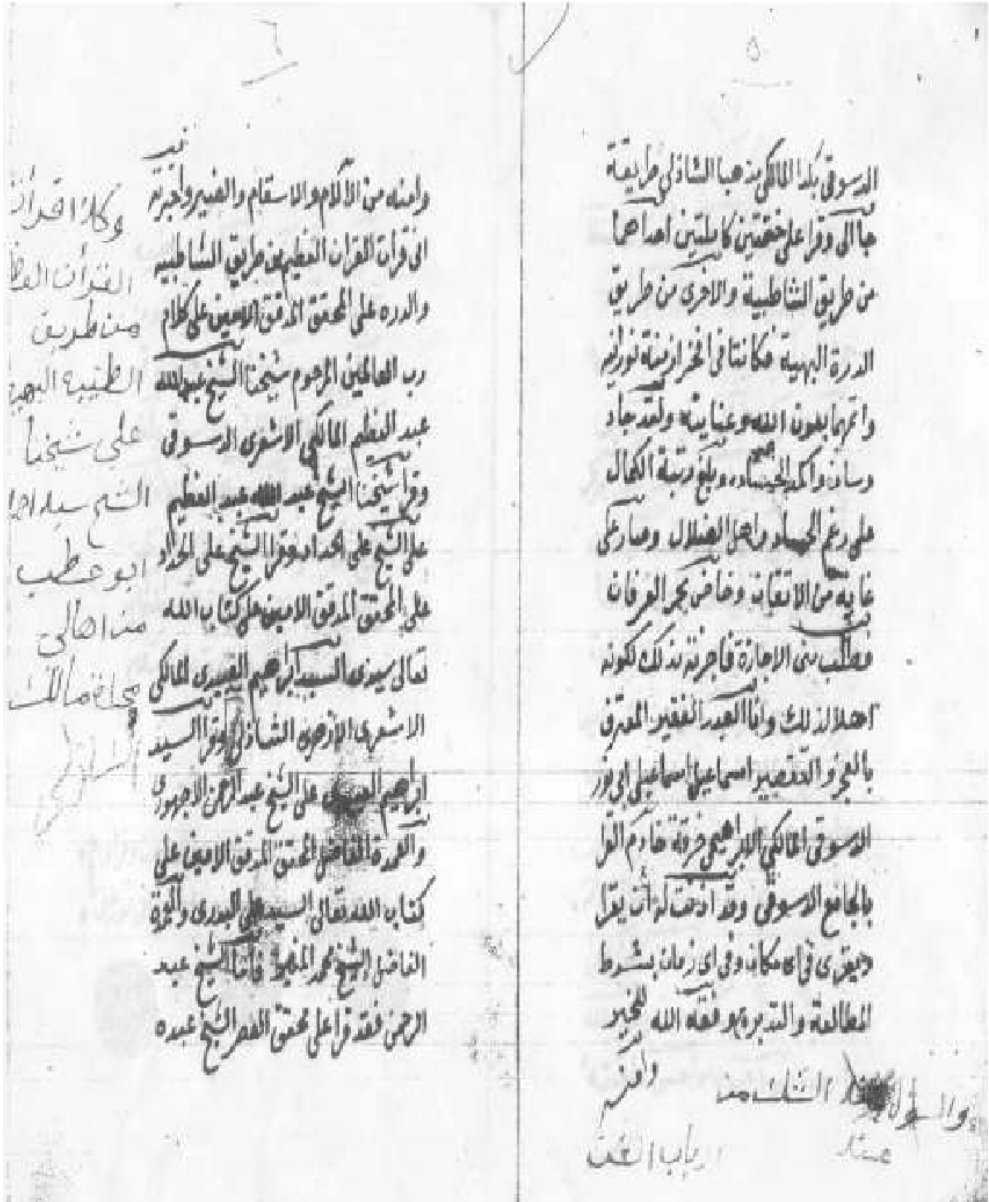 ٥
الدسوقى بلدا المالكى مذهبا الشاذلى طريقة
جا الى وقرا على ختمتين كاملتين احداهما
من طريق الشاطبية والاخرى من طريق
الدرة البهية فكانتا فى
واتمهما بعون الله وعنايته ولقد جاد
وساد واكمد وبلغ رتبة الكمال
على رغم اهل الضلال وصار على
غاية من الاتقان وخاض بحر العرفان
فطلب منى الاجازة فاجزته بذلك لكونه
اهلا لذلك وانا العبد الفقير المعترف
بالعجز والتقصير اسماعيل اسماعيل ابى نور
الدسوقى المالكى الابراهيمى خرقة خادم القرا
بالجامع الدسوقى وقد اذنت له ان يقرا
ويقرى فى اى مكان وفى اى زمان بشرط
المطالعة والتدبر وفقه الله للخير
وامنه
٦
وامنه من الآلام والاسقام والضير واخبرته
انى قرات القران العظيم من طريق الشاطبيه
والدره على المحقق المدقق الامين على كلام
رب العالمين المرحوم شيخنا الشيخ عبد الله
عبد العظيم المالكى الاشعرى الدسوقى
وقرا شيخنا الشيخ عبد الله عبد العظيم
على الشيخ على الحداد وقرا الشيخ على الحداد
على المحقق المدقق الامين على كتاب الله
تعالى سيدى السيد ابراهيم العبيدى المالكى
الاشعرى الازهرى الشاذلى وقرا السيد
ابراهيم العبيدى على الشيخ عبد الرحمن الاجهورى
والعمدة الفاضل المحقق المدقق الامين على
كتاب الله تعالى السيد على البدرى والعمدة
الفاضل الشيخ محمد المنير فاما الشيخ عبد
الرحمن فقد قرا على محقق العصر الشيخ عبده
وكذا قرأت
القرأن
من طريق
الطيبه البهية
على شيخنا
الشيخ سيد احمد
ابو حطب
من اهالى
محلة مالك